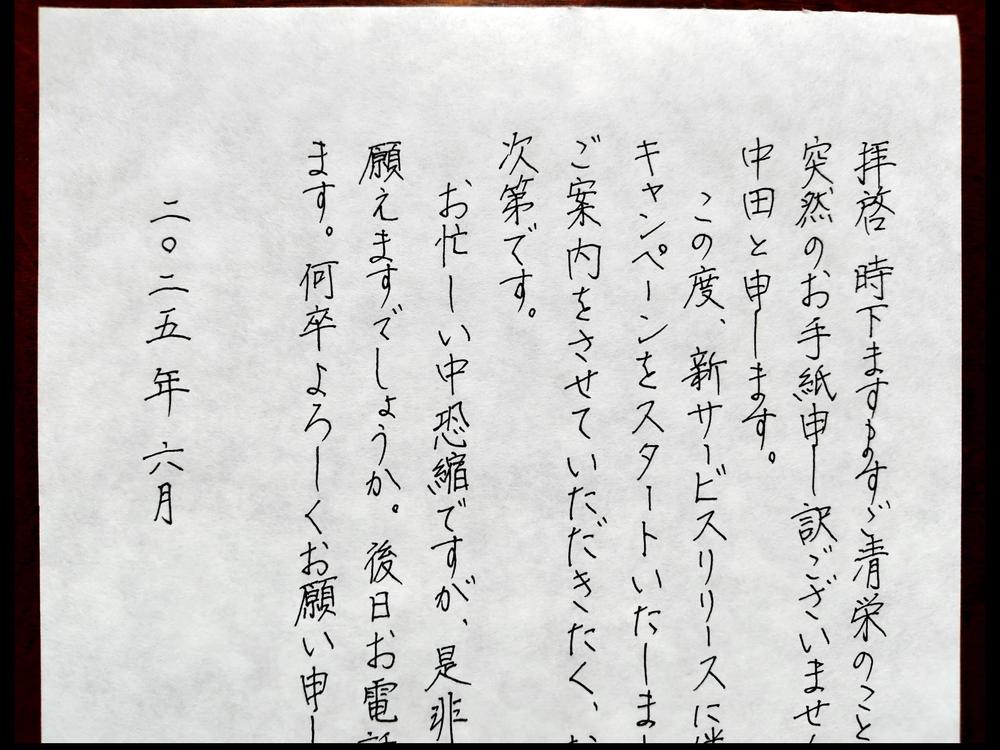 拝啓 時下ますますご清栄のこと
突然のお手紙申し訳ございません
中田と申します。
この度、新サービスリリースに
キャンペーンをスタートいたしまし
ご案内をさせていただきたく、お
次第です。
お忙しい中恐縮ですが、是非
願えますでしょうか。後日お電話
ます。何卒よろしくお願い申し
二〇二五年 六月